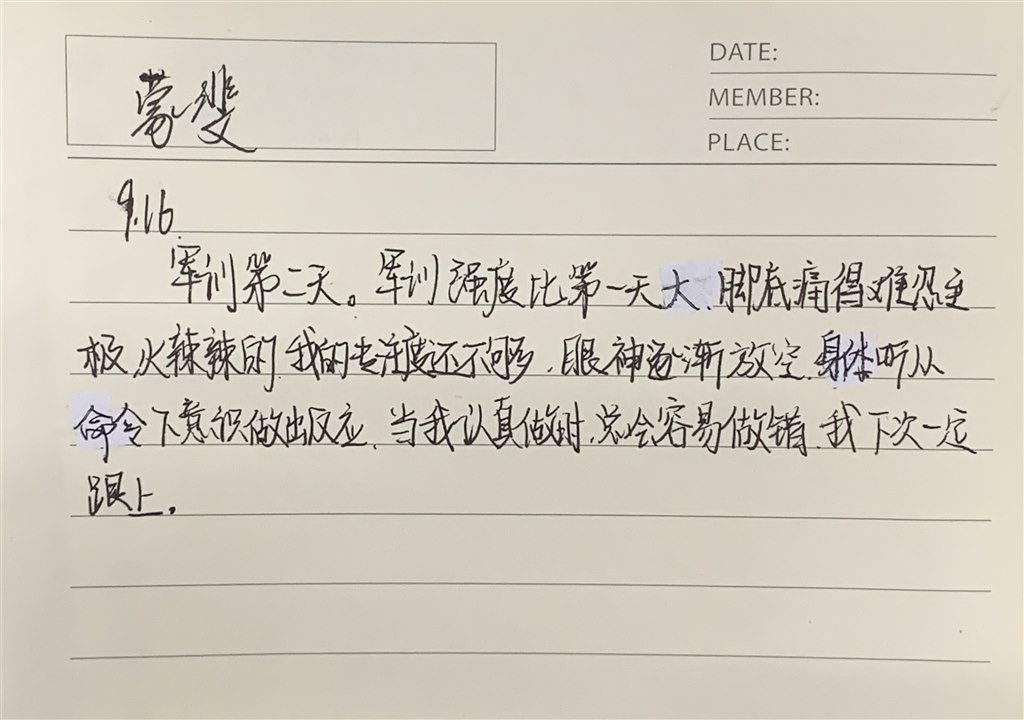 DATE:
蒙斐
MEMBER:
PLACE:
9.16
军训第二天。军训强度比第一天大,脚底痛得难忍至
极,火辣辣的,我的专注度还不够,眼神逐渐放空,身体听从
命令下意识做出反应,当我认真做时,总会容易做错,我下次一定
跟上。